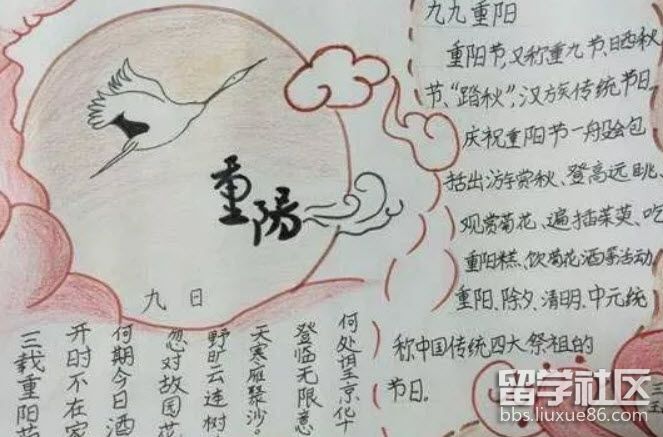 重陽
九日
三载重阳
开时不在家
何期今日酒
忽对故园花
野旷云连树
天寒雁聚沙。
登临无限意
何处望京华
九九重阳
重阳节,又称重九节、晒秋
节、“踏秋”,汉族传统节日。
庆祝重阳节一般会包
括出游赏秋、登高远眺、
观赏菊花、遍插茱萸、吃
重阳糕、饮菊花酒等活动
重阳、除夕、清明、中元统
称中国传统四大祭祖的
节日。
留学社区
bbs.liuxue86.com